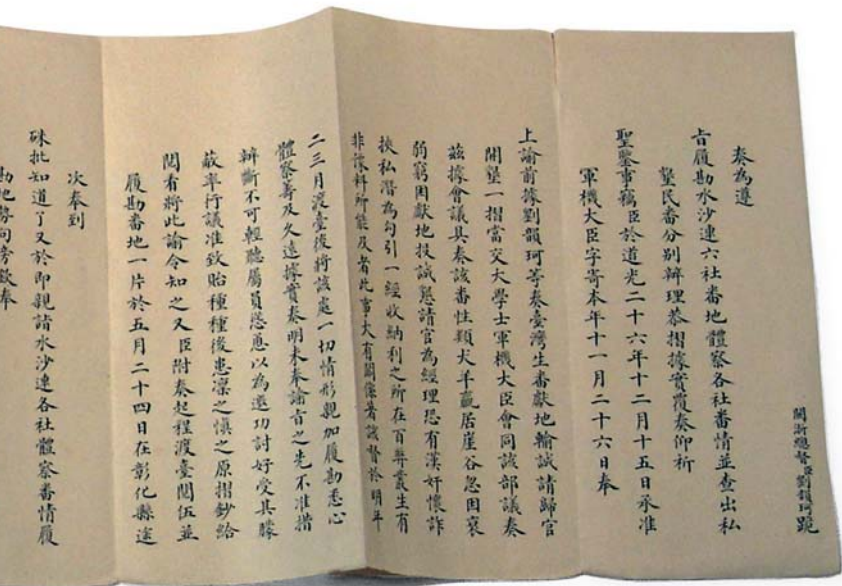 閩浙總督臣劉韻珂跪
奏為遵
旨履勘水沙連六社番地體察各社番情並查出私
墾民番分別辦理恭摺據實覆奏仰祈
聖鑒事竊臣於道光二十六年十二月十五日承准
軍機大臣字寄本年十一月二十六日奉
上諭前據劉韻珂等奏臺灣生番獻地輸誠請歸官
開墾一摺當交大學士軍機大臣會同該部議奏
茲據會議具奏該番性類犬羊蟊居崖谷忽因衰
弱窮困獻地投誠懇請官為經理恐有漢奸懷詐
挾私潛為勾引一經收納利之所在百弊叢生有
非豫料所能及者此事大有關係著該督於明年
二三月渡臺後將該處一切情形親加履勘悉心
體察籌及久遠據實奏明未奉諭旨之先不准擅
辦斷不可輕聽屬員慫恿以為邀功討好受其朦
蔽率行議准致貽種種後患凜之慎之原摺鈔給
閱看將此諭令知之又臣附奏起程渡臺閱伍並
履勘番地一片於五月二十四日在彰化縣途
次奉到
硃批知道了又於即親詣水沙連各社體察番情履